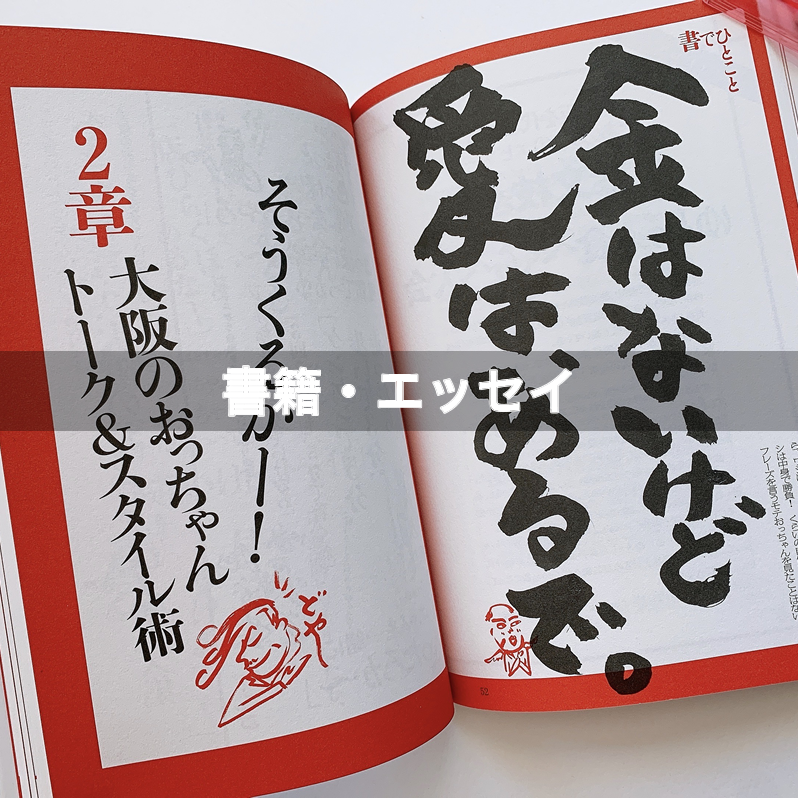 2章
そうくるかー!
大阪のおっちゃん
トーク&スタイル術
どや
書でひとこと
金はないけど
愛は、あるで。
シは中身で勝負!
フレーズを言うモテおっちゃんを見たことはない
52
書籍・エッセイ